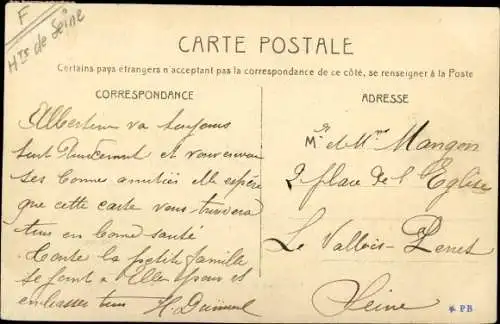 F
Hts de Seine
CARTE POSTALE
Certains pays étrangers n'acceptant pas la correspondance de ce côté, se renseigner à la Poste
CORRESPONDANCE
ADRESSE
Albertine va toujours
tout doucement et vous envoie
ses bonnes amitiés elle espère
que cette carte vous trouvera
tous en bonne santé
toute la petite famille
se joint à Elle pour
embrasser tous H.
Mr et Mme Mangon
2 place de l'Eglise
Le Vallois-Perret
Seine
* PB